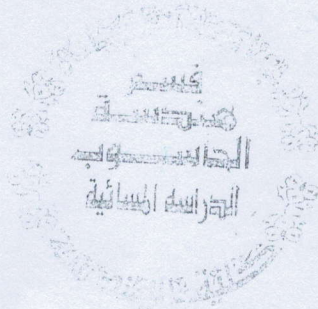 قسم
هندسة
الحاسوب
الدراسه المسائية